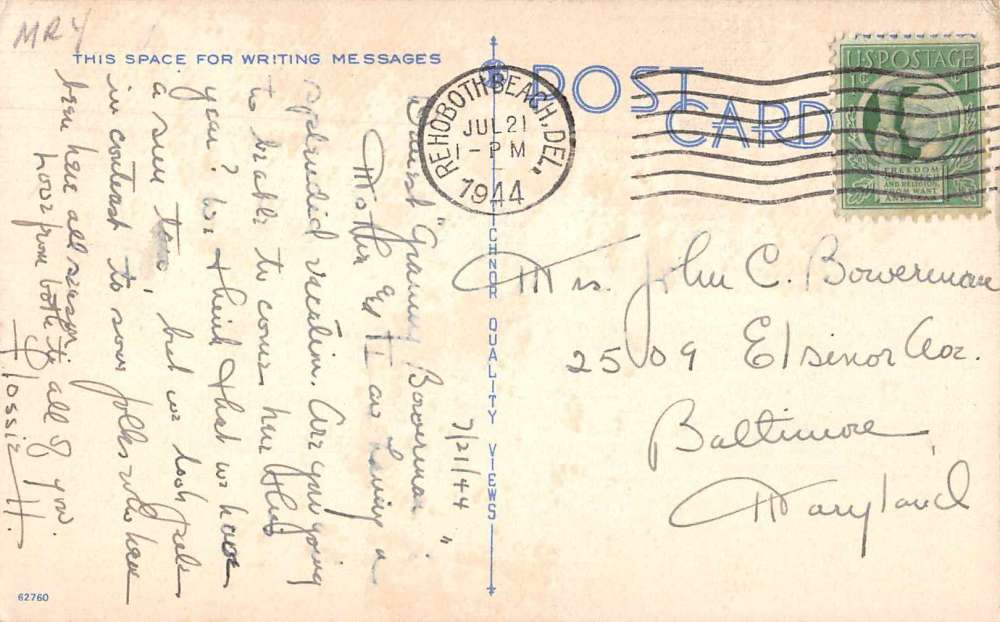 MRY
THIS SPACE FOR WRITING MESSAGES
POST
CARD
REHOBOTH BEACH, DEL.
JUL 21
1 - PM
1944
U.S. POSTAGE
1¢
FREEDOM
OF SPEECH
AND RELIGION,
FROM WANT
AND FEAR
TICHNOR QUALITY VIEWS
7/21/44
Dearest "Granny Bowerman":
Mother Ed & I are having a
splendid vacation. Are you going
to be able to come here this
year? We think that we have
a sun tan, but we look pale
in contrast to some folks who have
been here all season.
Love from both to all of you.
Flossie H.
Mrs. John C. Bowerman
2509 Elsinor Ave.
Baltimore
Maryland
62760